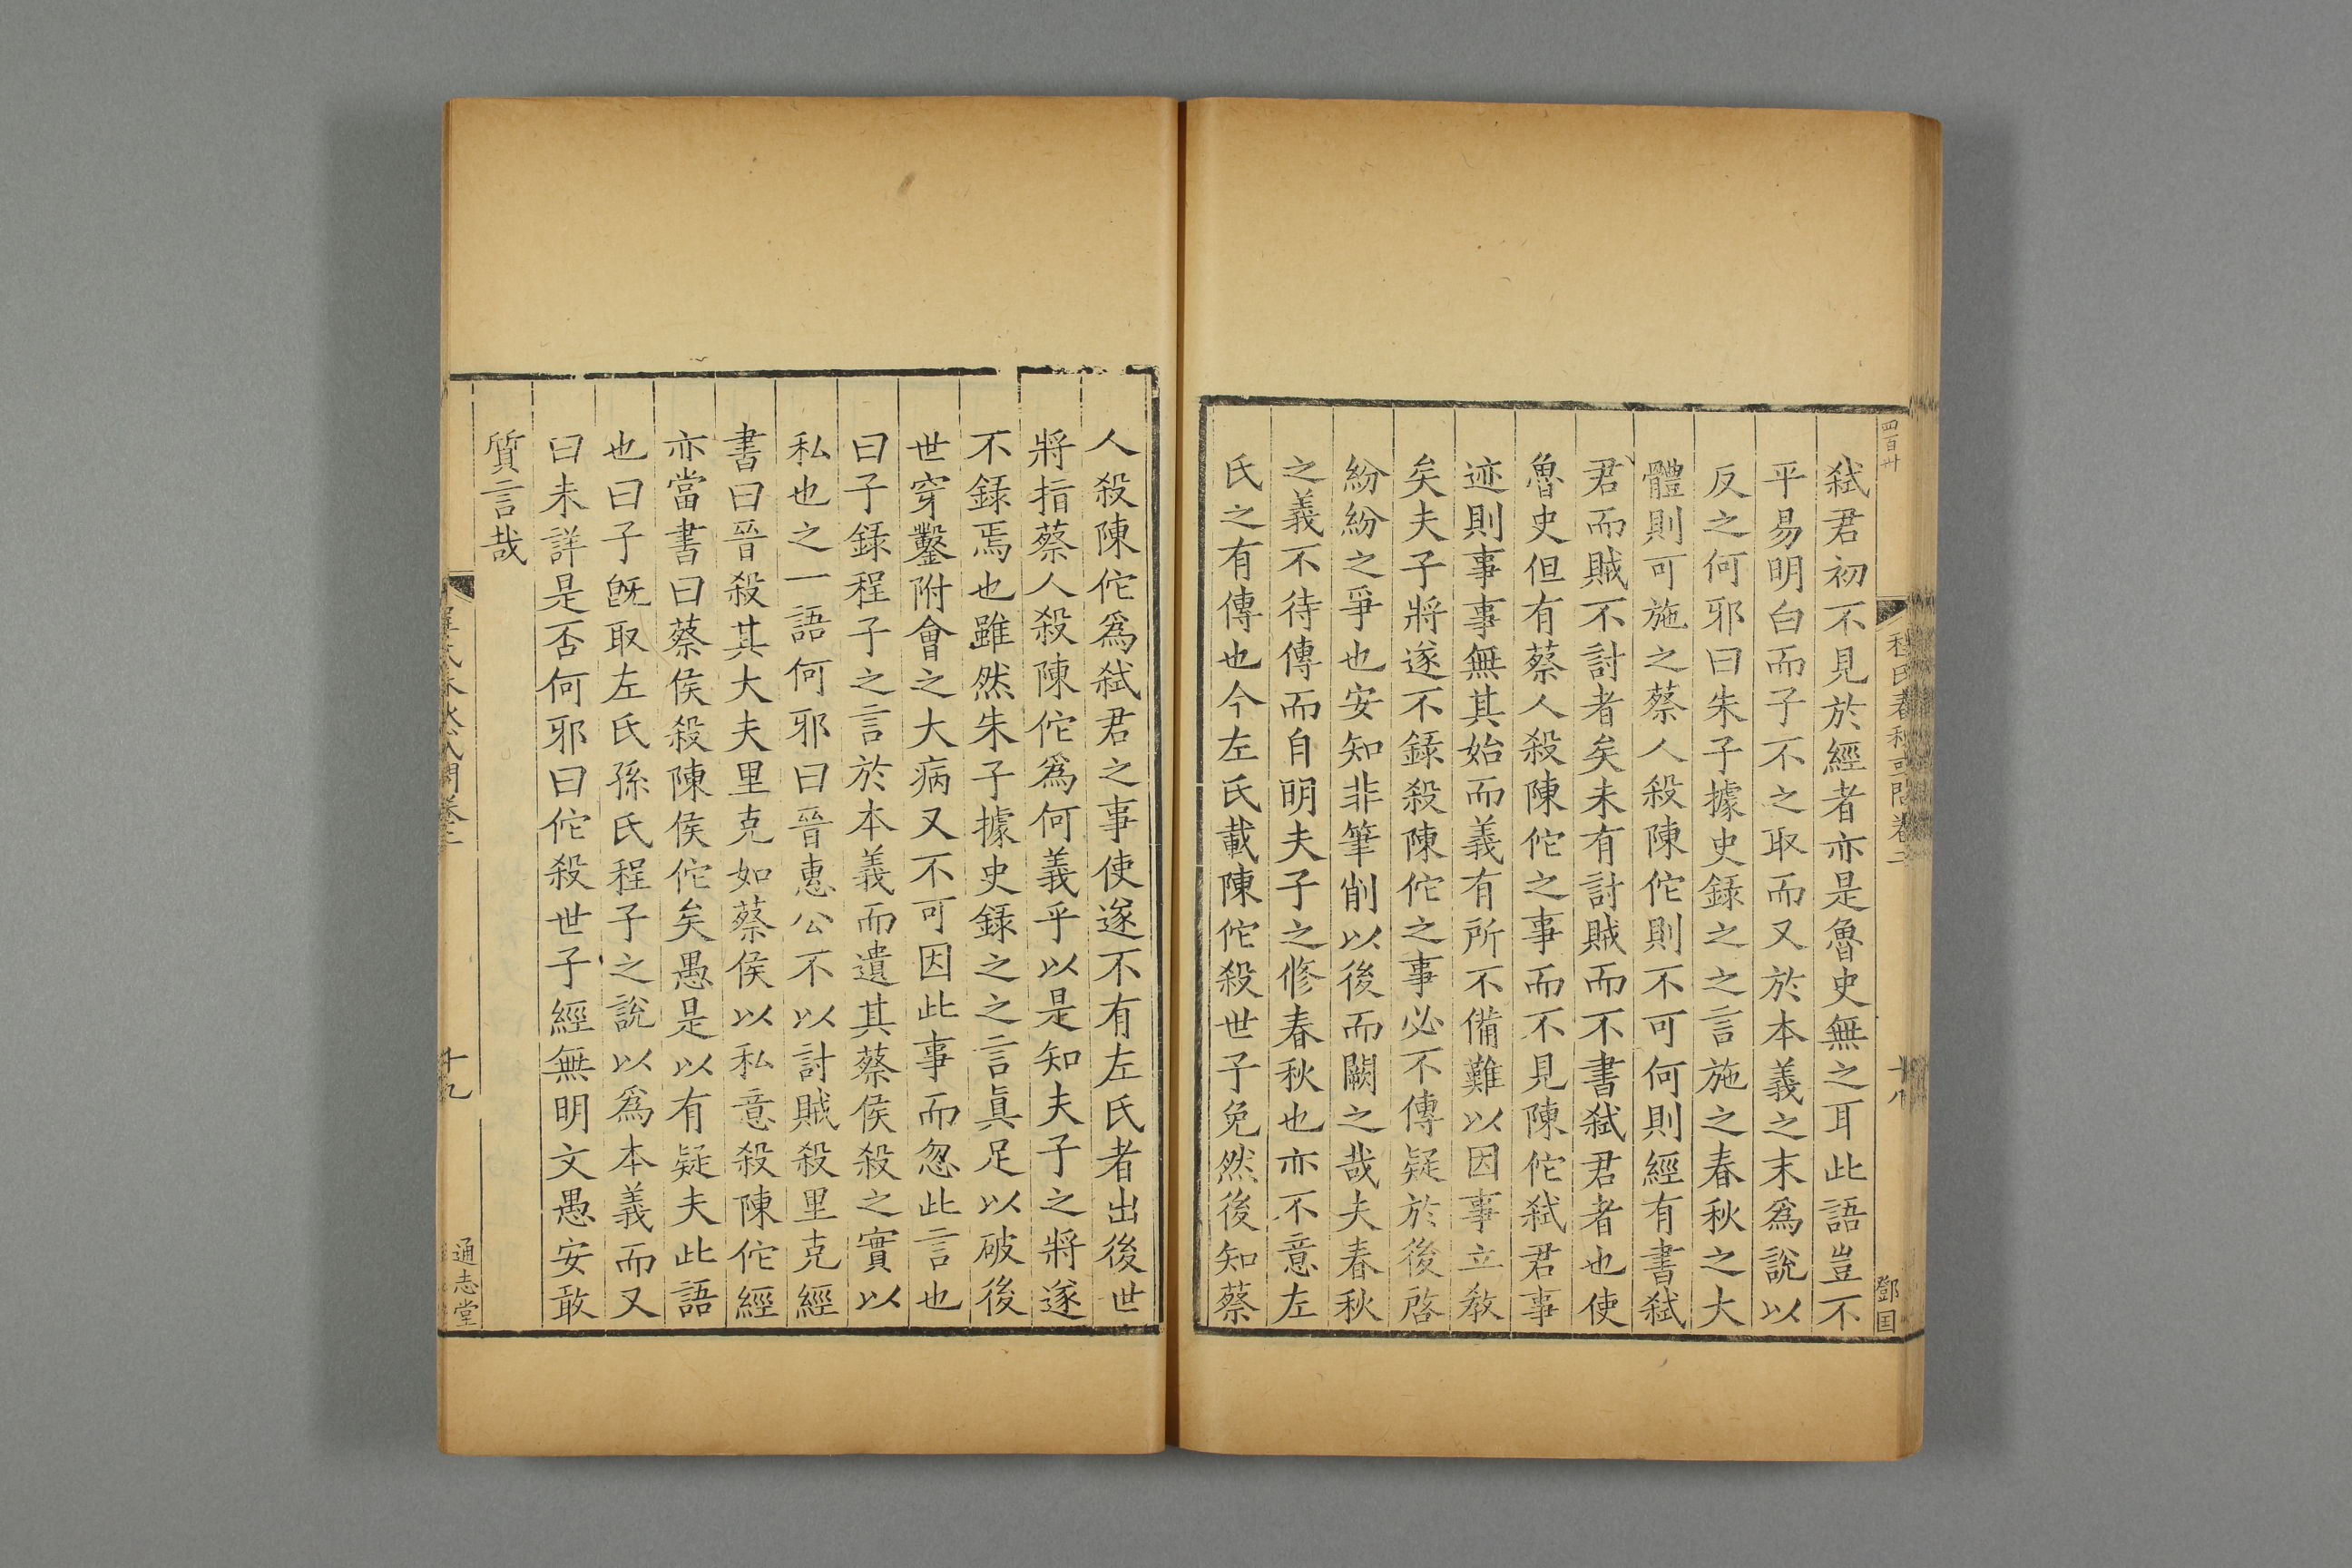 四百廿
程氏春秋或問卷二
十八
鄧国
弑君初不見於經者亦是魯史無之耳此語豈不
平易明白而子不之取而又於本義之末爲說以
反之何邪曰朱子據史錄之之言施之春秋之大
體則可施之蔡人殺陳佗則不可何則經有書弑
君而賊不討者矣未有討賊而不書弑君者也使
魯史但有蔡人殺陳佗之事而不見陳佗弑君事
迹則事事無其始而義有所不備難以因事立敎
矣夫子將遂不錄殺陳佗之事必不傳疑於後啓
紛紛之爭也安知非筆削以後而闕之哉夫春秋
之義不待傳而自明夫子之修春秋也亦不意左
氏之有傳也今左氏載陳佗殺世子免然後知蔡
人殺陳佗爲弑君之事使遂不有左氏者出後世
將指蔡人殺陳佗爲何義乎以是知夫子之將遂
不錄焉也雖然朱子據史錄之之言眞足以破後
世穿鑿附會之大病又不可因此事而忽此言也
曰子錄程子之言於本義而遺其蔡侯殺之實以
私也之一語何邪曰晉惠公不以討賊殺里克經
書曰晉殺其大夫里克如蔡侯以私意殺陳佗經
亦當書曰蔡侯殺陳侯佗矣愚是以有疑夫此語
也曰子旣取左氏孫氏程子之說以爲本義而又
曰未詳是否何邪曰佗殺世子經無明文愚安敢
質言哉
程氏春秋或問卷二
十九
通志堂